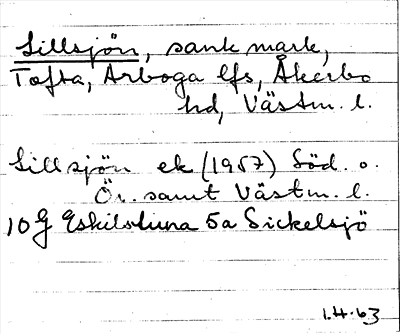 Sillsjön, sank mark,
Tofta, Arboga lfs, Åkerbo
hd, Västm. l.
Sillsjön ek (1957) Söd. o.
Ör. samt Västm. l.
10G Eskilstuna 5a Sickelsjö
1.4.63